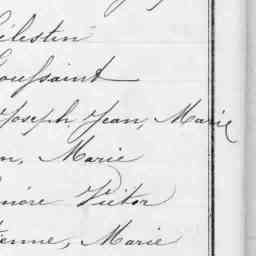 élestin
oussaint
Joseph, Jean, Marie
n, Marie
noré Victor
ienne, Marie